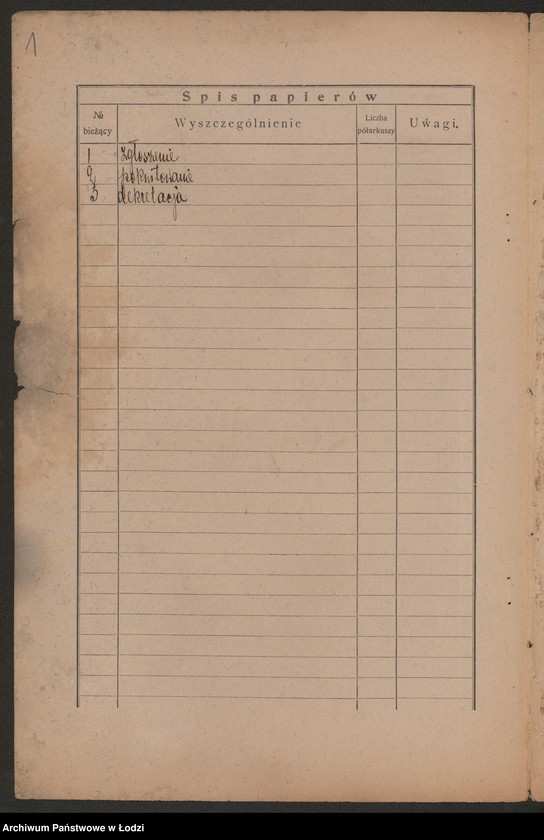 1
Spis papierów
№ bieżący Wyszczególnienie Liczba półarkuszy Uwagi.
1 zgłoszenie
2 pokwitowanie
3 dekretacja
Archiwum Państwowe w Łodzi